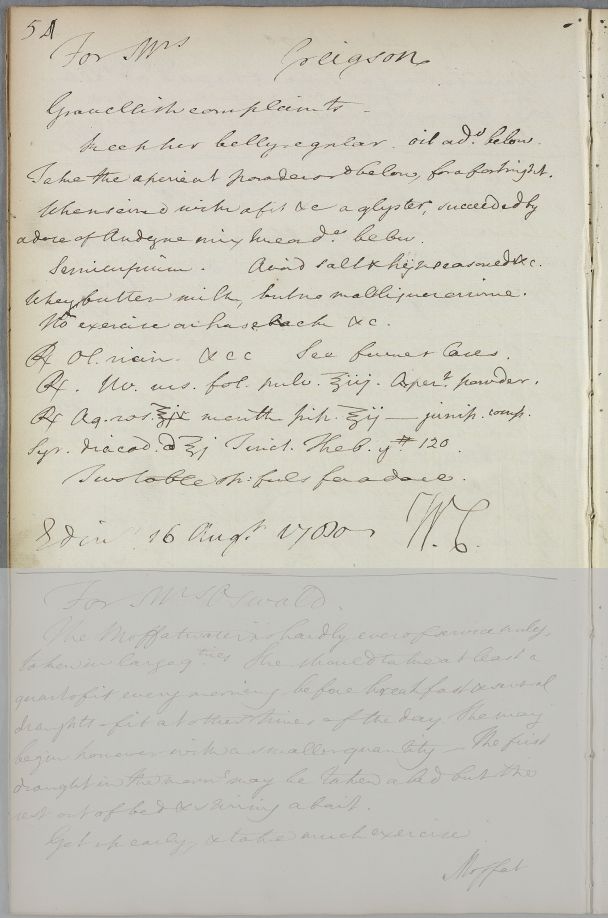 54
For Mrs Greigson
Gravellish complaints -
Keep her belly regular. oil ad.d below.
Take the aperient powder ord below, for a fortnight.
When seized with a fit &c a glyster, succeeded by
a dose of Anodyne mixture ad.ed below.
Semicupium. Avoid salt & high seasoned &c.
Whey, butter milk, but no malt liquor or wine.
No exercise on horseback &c.
℞ Ol. ricin. &cc See former Cases.
℞. Uv. urs. fol. pulv. ʒiij. Aper.t powder.
℞ Aq. ros. menth pip. ℥ij — junip. comp.
Syr. diacod. a ℥j Tinct. Theb. gtt 120.
Two table sp:fuls for a dose.
Edin 16 Augt 1780 W.C.
For Mrs Oswald.
The Moffat water is hardly ever of service unless
taken in large q.ties She should take at least a
quart of it every morning before breakfast & several
draughts of it at other times of the day. She may
begin however with a smaller quantity — The first
draught in the morn.g may be taken a bed but the
rest out of bed & stirring about.
Get up early, & take much exercise
Moffat